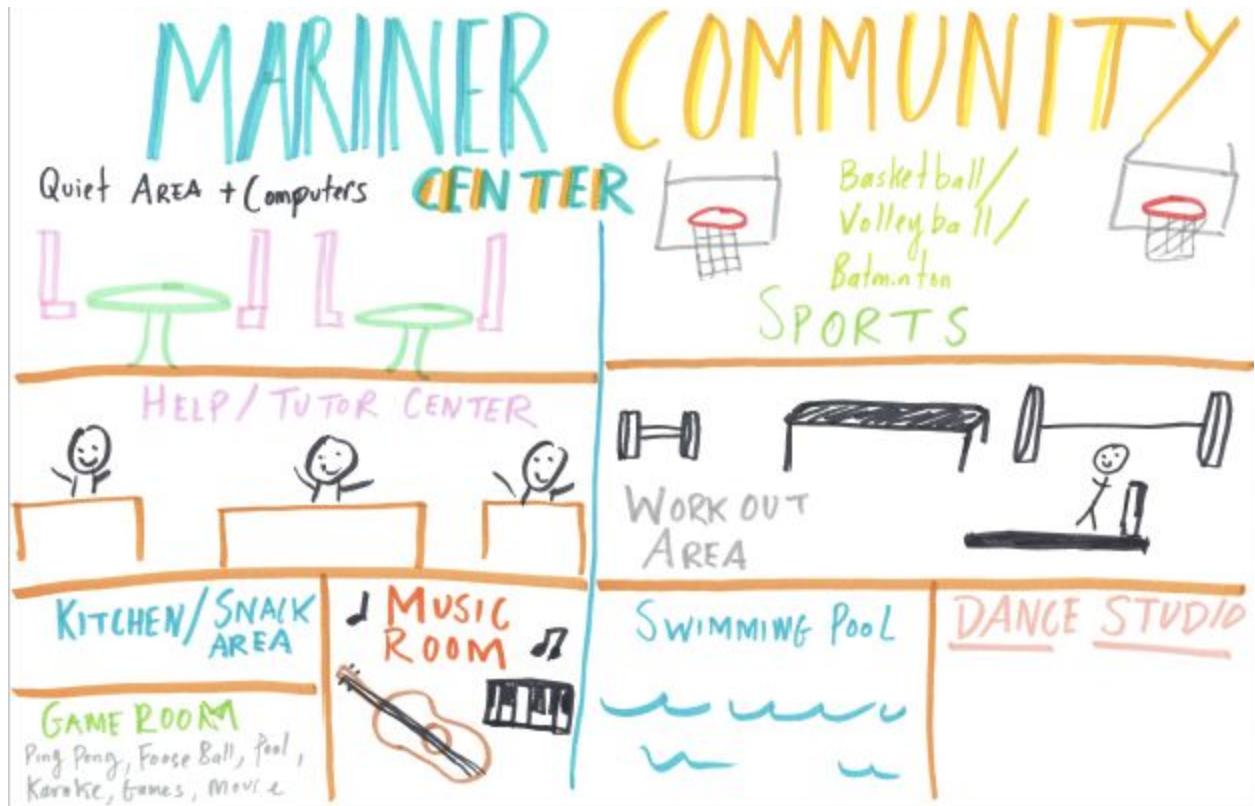 MARINER COMMUNITY
CENTER
Quiet AREA + Computers
Basketball/
Volleyball/
Batminton
SPORTS
HELP/TUTOR CENTER
WORK OUT
AREA
KITCHEN/SNACK
AREA
MUSIC
ROOM
SWIMMING POOL
DANCE STUDIO
GAME ROOM
Ping Pong, Foose Ball, Pool,
Karoke, Games, Movie